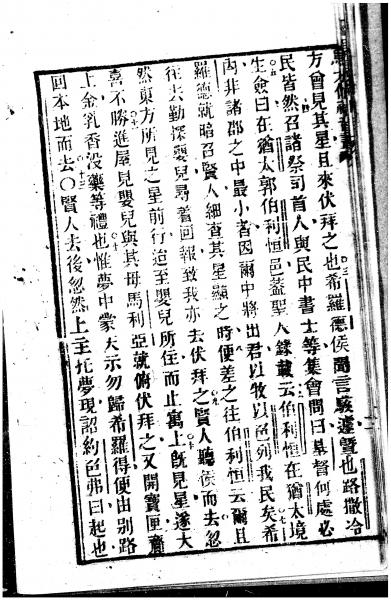 方曾見其星且來伏拜之也希羅德侯聞言駭遽暨也路撒冷
民皆然召諸祭司首人與民中書士等集會問曰基督何處必
生僉曰在猶太郭伯利恒邑蓋聖人錄載云伯利恒在猶太境
內非諸郡之中最小者因爾中將出君以牧以色列我民矣希
羅德就暗召賢人細查其星顯之時便差之往伯利恒云爾且
往去勤探嬰兒尋着回報致我亦去伏拜之賢人聽侯而去忽
然東方所見之星前行迨至嬰兒所住而止寓上旣見星遂大
喜不勝進屋見嬰兒與其母馬利亞就俯伏拜之又開寶匣齎
上金乳香没藥等禮也惟夢中蒙天示勿歸希羅得便由别路
回本地而去〇賢人去後忽然上主托夢現詔約色弗曰起也